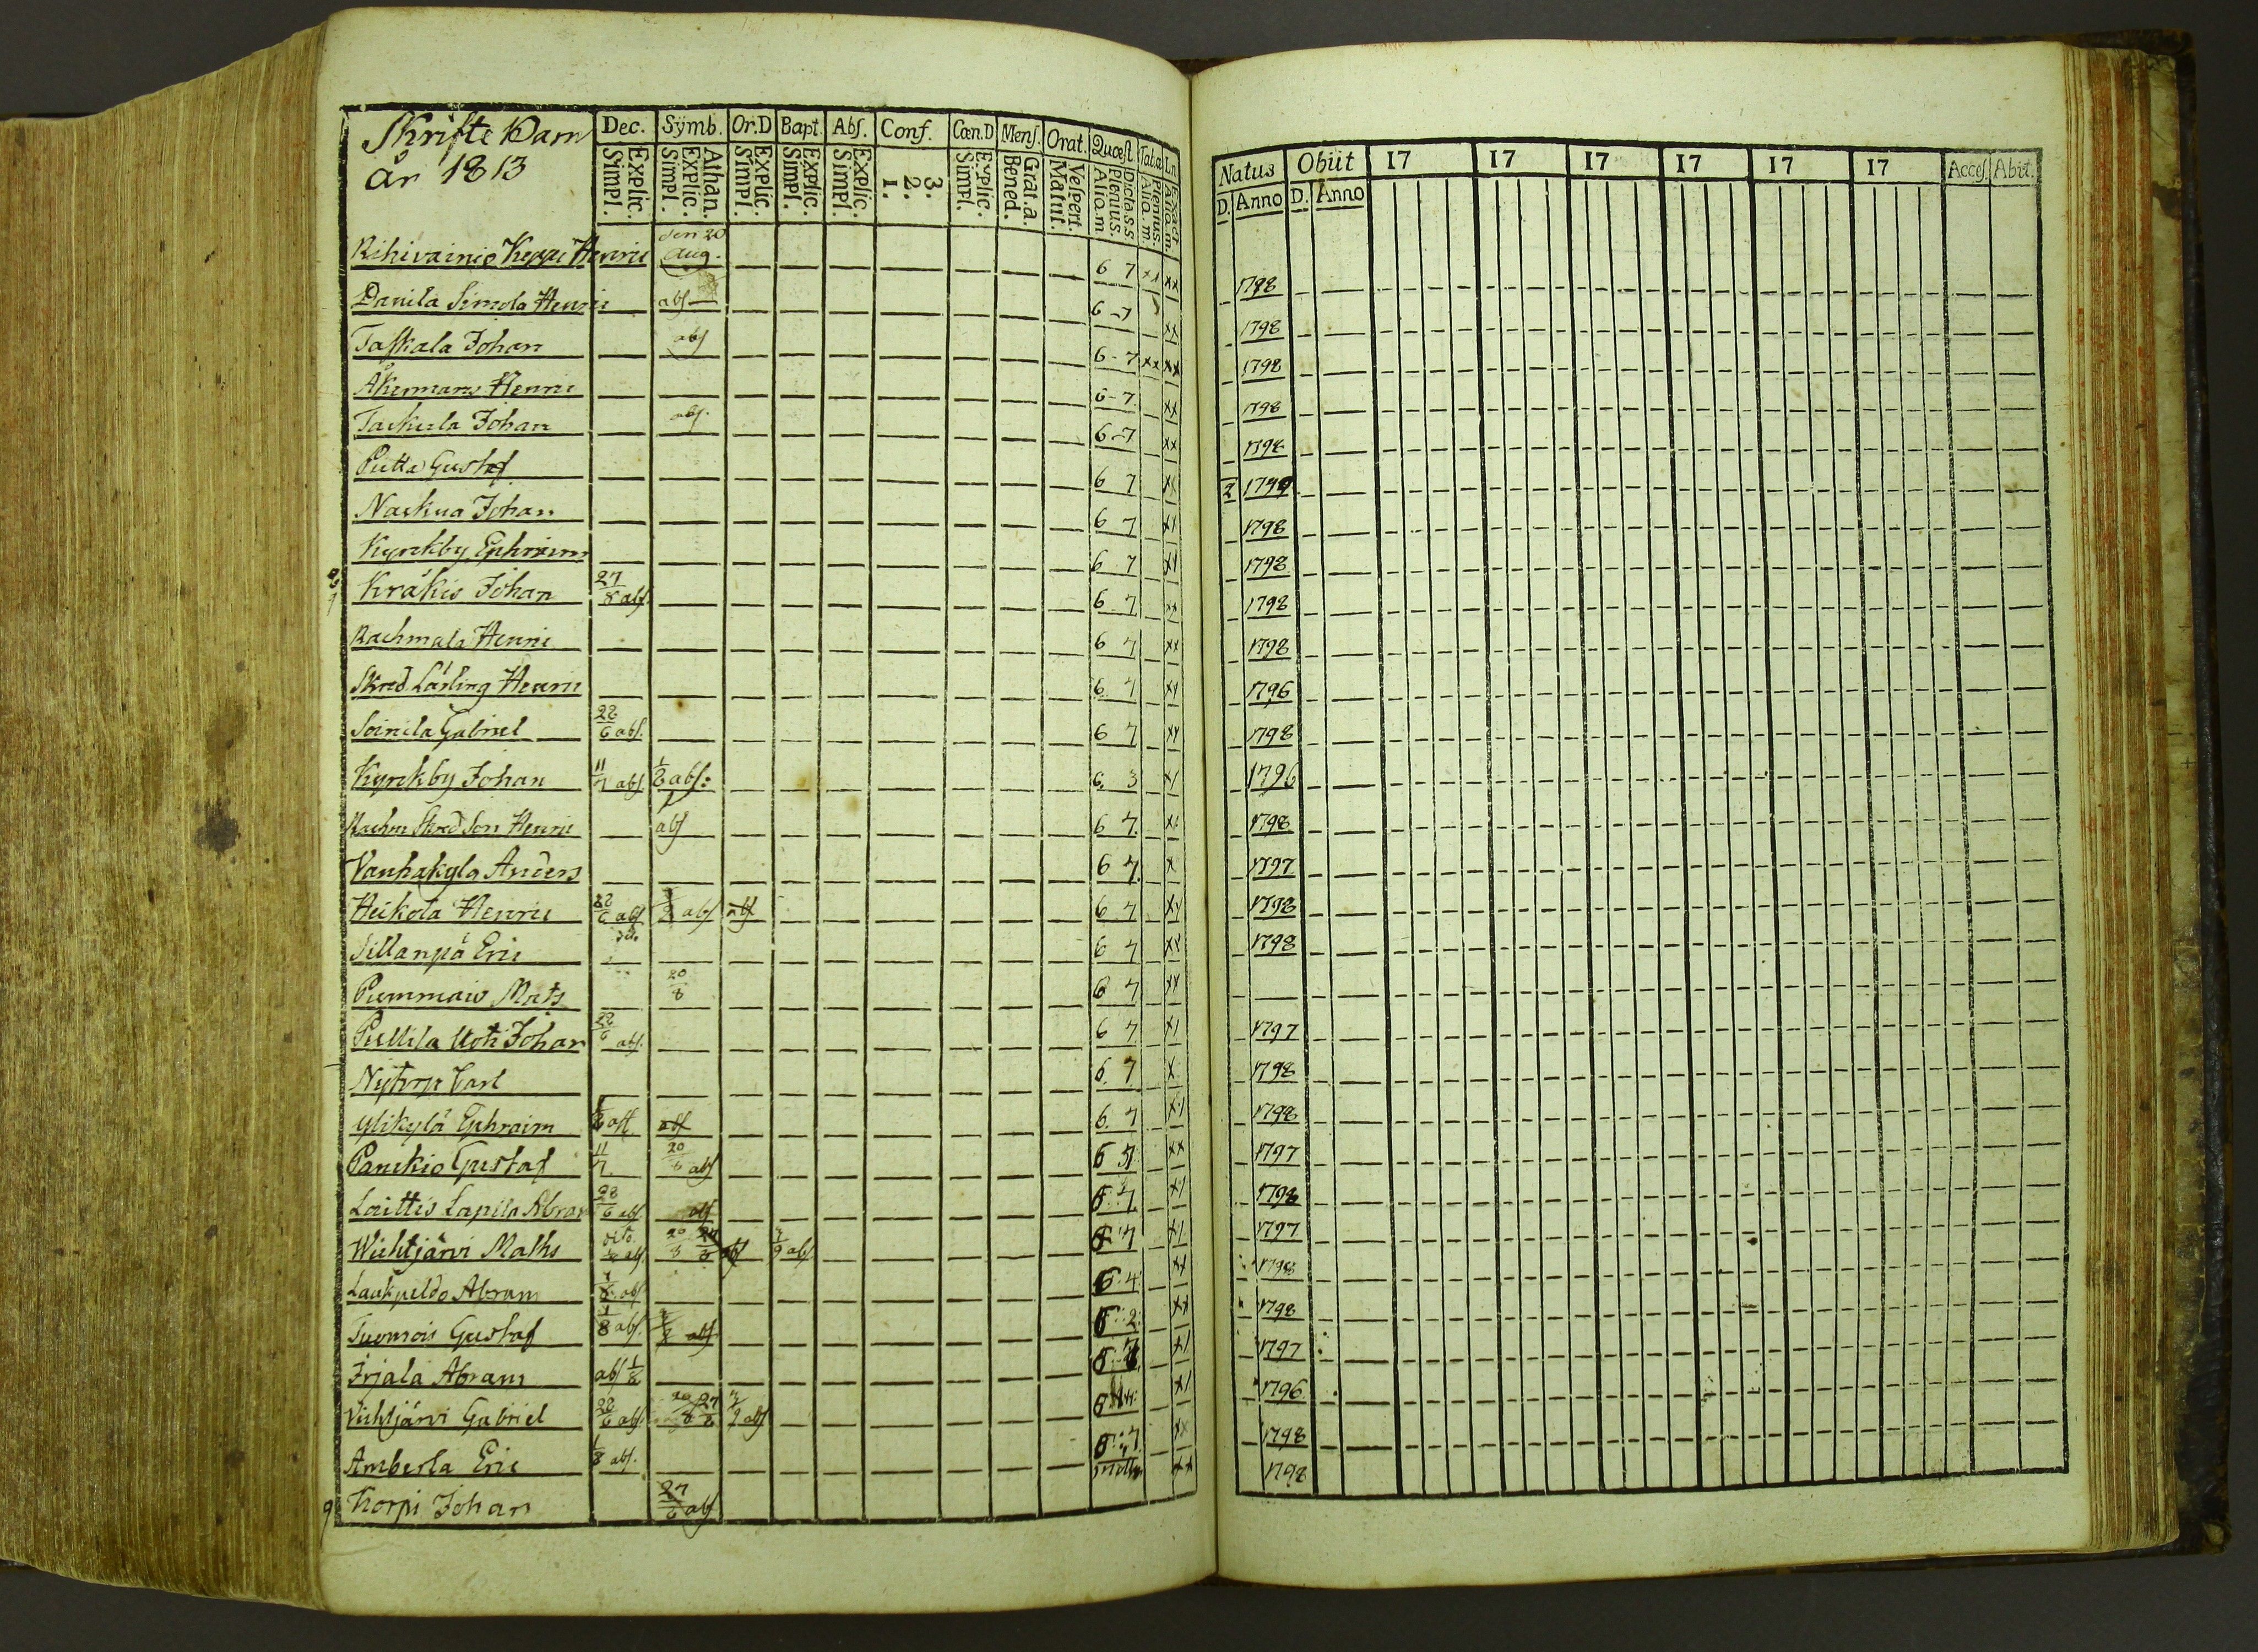 Skrifte Barn
År 1813
Dec. Symb. Or.D Bapt. Abs. Conf. Cœn.D Mens. Orat. Quæst. Tab.a
Explic. Simpl. Athan. Explic. Simpl. Explic. Simpl. Explic. Simpl. Explic. Simpl. 3. 2. 1. Explic. Simpl. Grat.a. Bened. Vespert. Matut. Dicta.S.S Plenius. Aliq.m Plenius. Aliq.m. Exact. Aliq.m.
Natus Obiit 17 17 17 17 17 17 Acces. Abiit.
D. Anno D. Anno
Rihivainio Keppi Henric den 20 Aug. 6 7 xx xx 1798
Danila Simola Henric abs 6-7 xx 1798
Taskala Johan abs 6-7 xx xx 1798
Åkermans Henric 6-7. xx 1798
Taskula Johan abs. 6-7 xx 1798
Putta Gustaf 6 7 xx 2 1799
Naskua Johan 6 7 x1 1798
Kyrckby Ephraim 6 7 x1 1798
Kråkis Johan 27/8 abs. 6 7 xx 1798
Rachmala Henric 6 7 xx 1798
Skred. Lärling Henric 6. 7 x1 1796
Soinila Gabriel 22/6 abs. 6 7 xx 1798
Kyrckby Johan 11/7 abs. 1/8 abs: 6. 3 x1 1796
Rachm Skred Son Henric abs 6 7. x1 1798
Vanhakylä Anders 6 7. x 1797
Heikola Henric 22/6 abs abs abs 6 7 xx 1798
Sillanpä Eric 6 7 xx 1798
Pummais Mats 20/8 6 7 xx
Pullila Uoti Johan 22/6 abs. 6 7 x1 1797
Nytorp Carl 6. 7 x 1798
Ylikylä Ephraim abs. abs 6. 7 x1 1798
Panckio Gustaf 11/7. 20/8 abs 6 5 xx 1797
Laittis Lapila Abram abs abs 6. 7 x1 1798
Wichtjärvi Maths dito. abs. 20/8 abs 9 abs 6 7 x1 1797
Laukpeldo Abram 1/8 abs 6. 4 xx 1798
Tuomois Gustaf 1/8 abs. abs 6. 2. xx 1798
Irjala Abram abs 1/8 x1 1797
Vichtjärvi Gabriel 22/6 abs. 20/8 27/8 9 abs x1 1796
Amberla Eric 1/8 abs. 6. 7 xx 1798
Korpi Johan 27/8 abs xx 1798